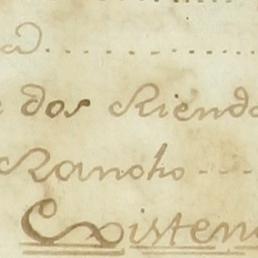 a
e dos Rienda
Rancho
Existen